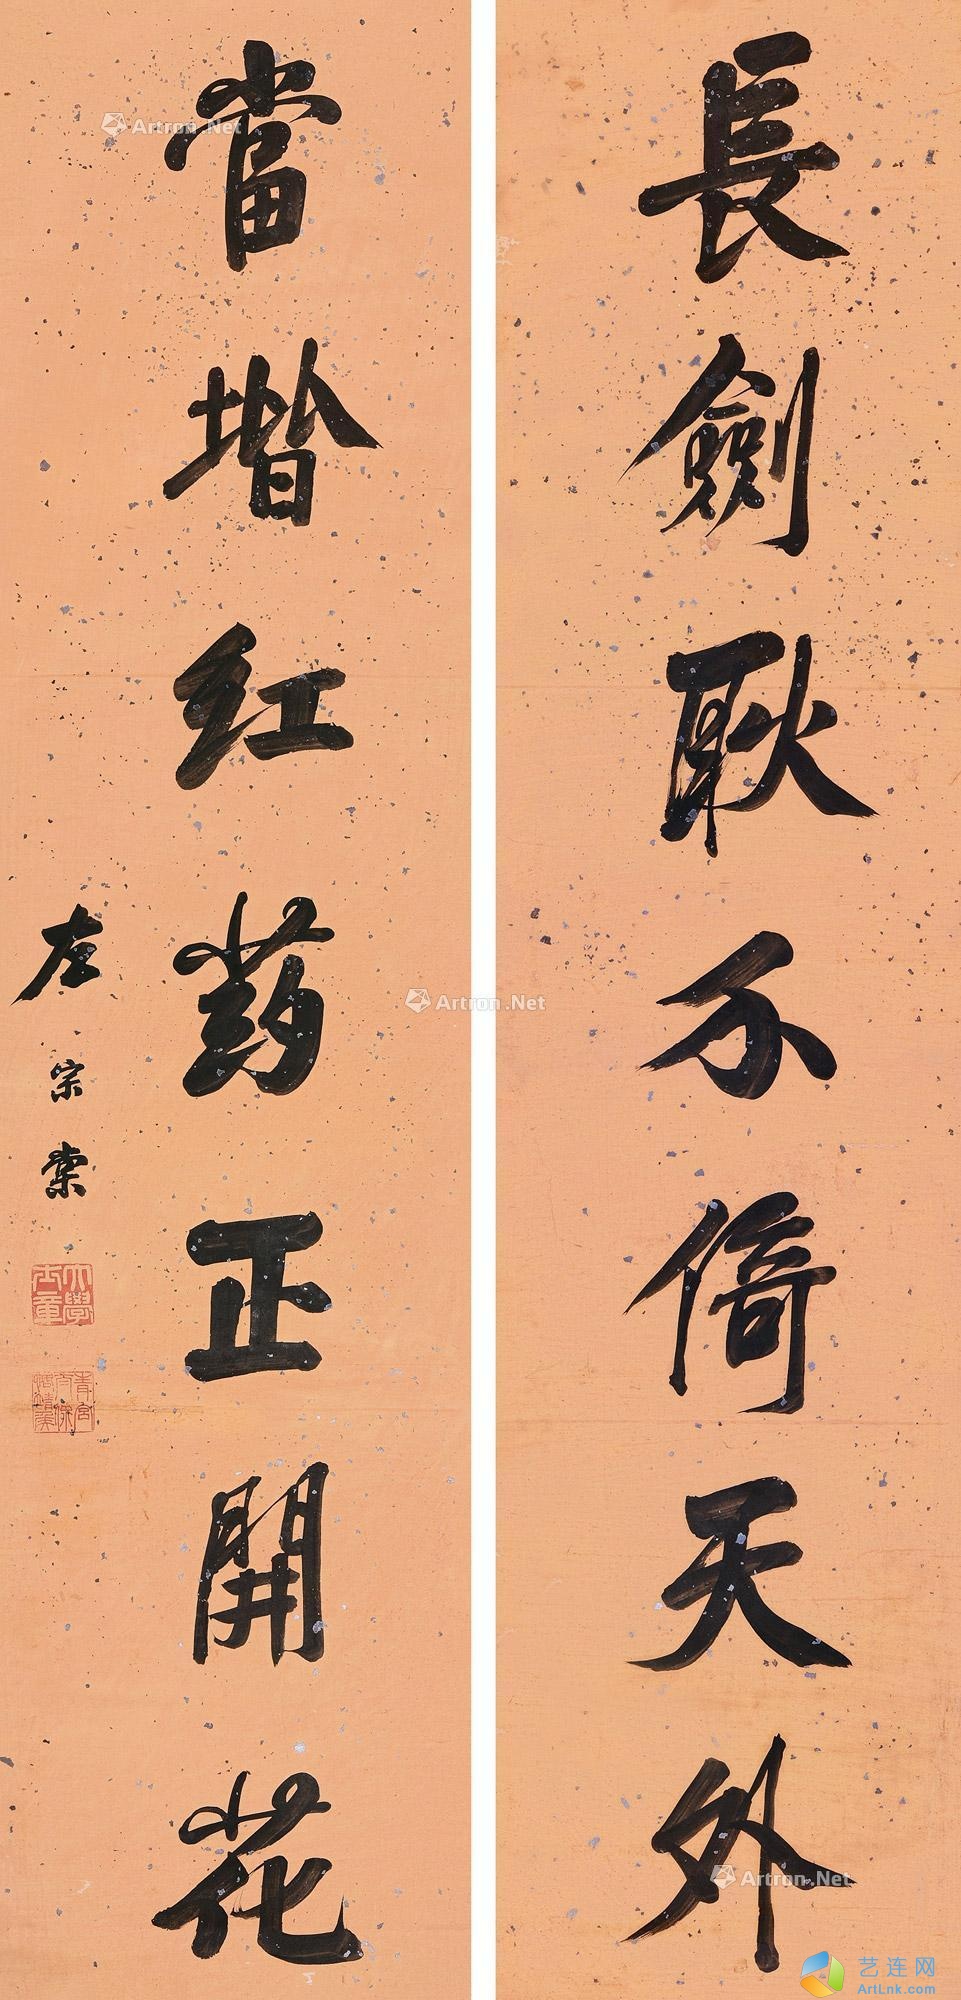 長劍耿介倚天外
當堦紅药正開花
左宗棠
大學士章
青宮太保恪靖侯
Artron.Net
Artron.Net
Artron.Net
艺连网
ArtLnk.com